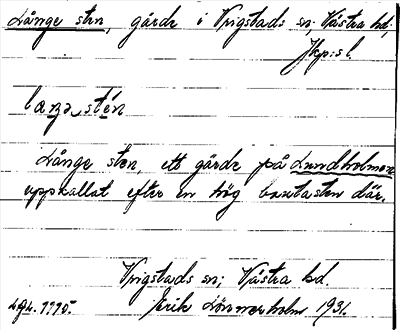 Långe sten, gärde i Vrigstads sn; Västra hd,
Jkp:s l.
Långe sten, ett gärde på Lundholmen
uppkallat efter en hög bautasten där.
Vrigstads sn; Västra hd.
Erik Lönnerholm 1931.